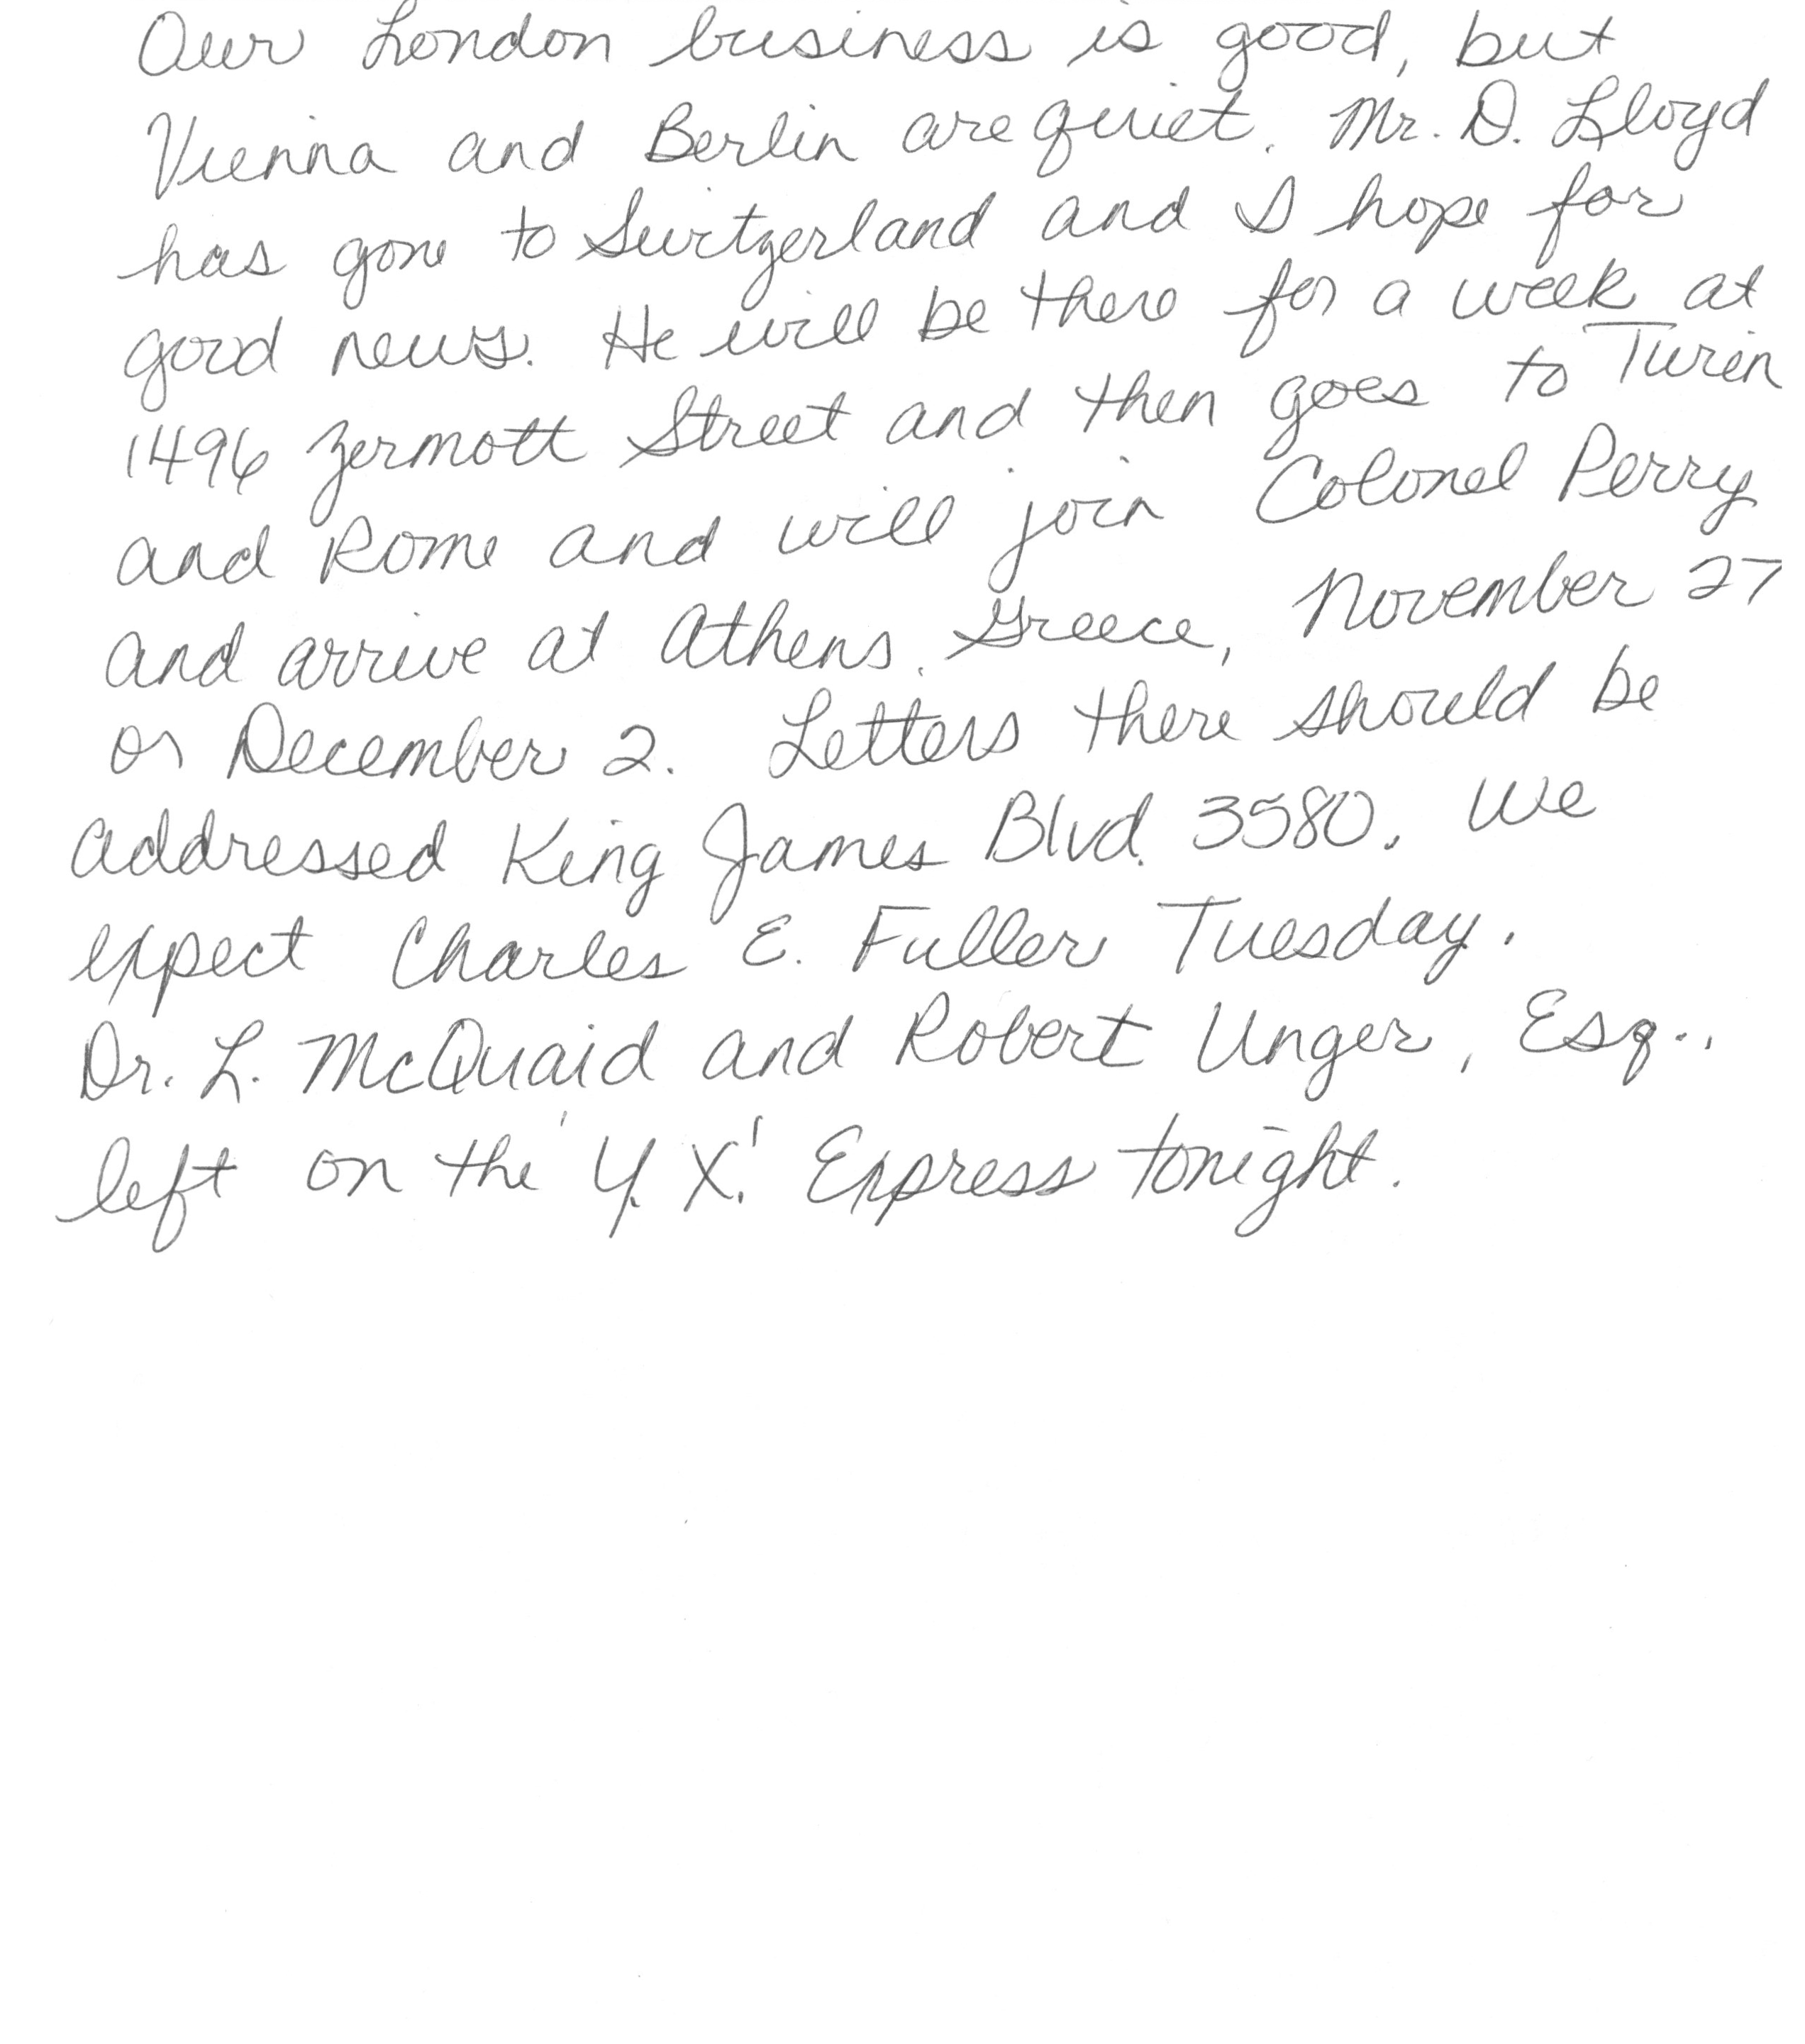 Our London business is good, but
Vienna and Berlin are quiet. Mr. D. Lloyd
has gone to Switzerland and I hope for
good news. He will be there for a week at
1496 Zermott Street and then goes to Turin
and Rome and will join Colonel Perry
and arrive at Athens, Greece, November 27
or December 2. Letters there should be
addressed King James Blvd. 3580. We
expect Charles E. Fuller Tuesday.
Dr. L. McQuaid and Robert Unger, Esq.,
left on the 'Y. X.' Express tonight.